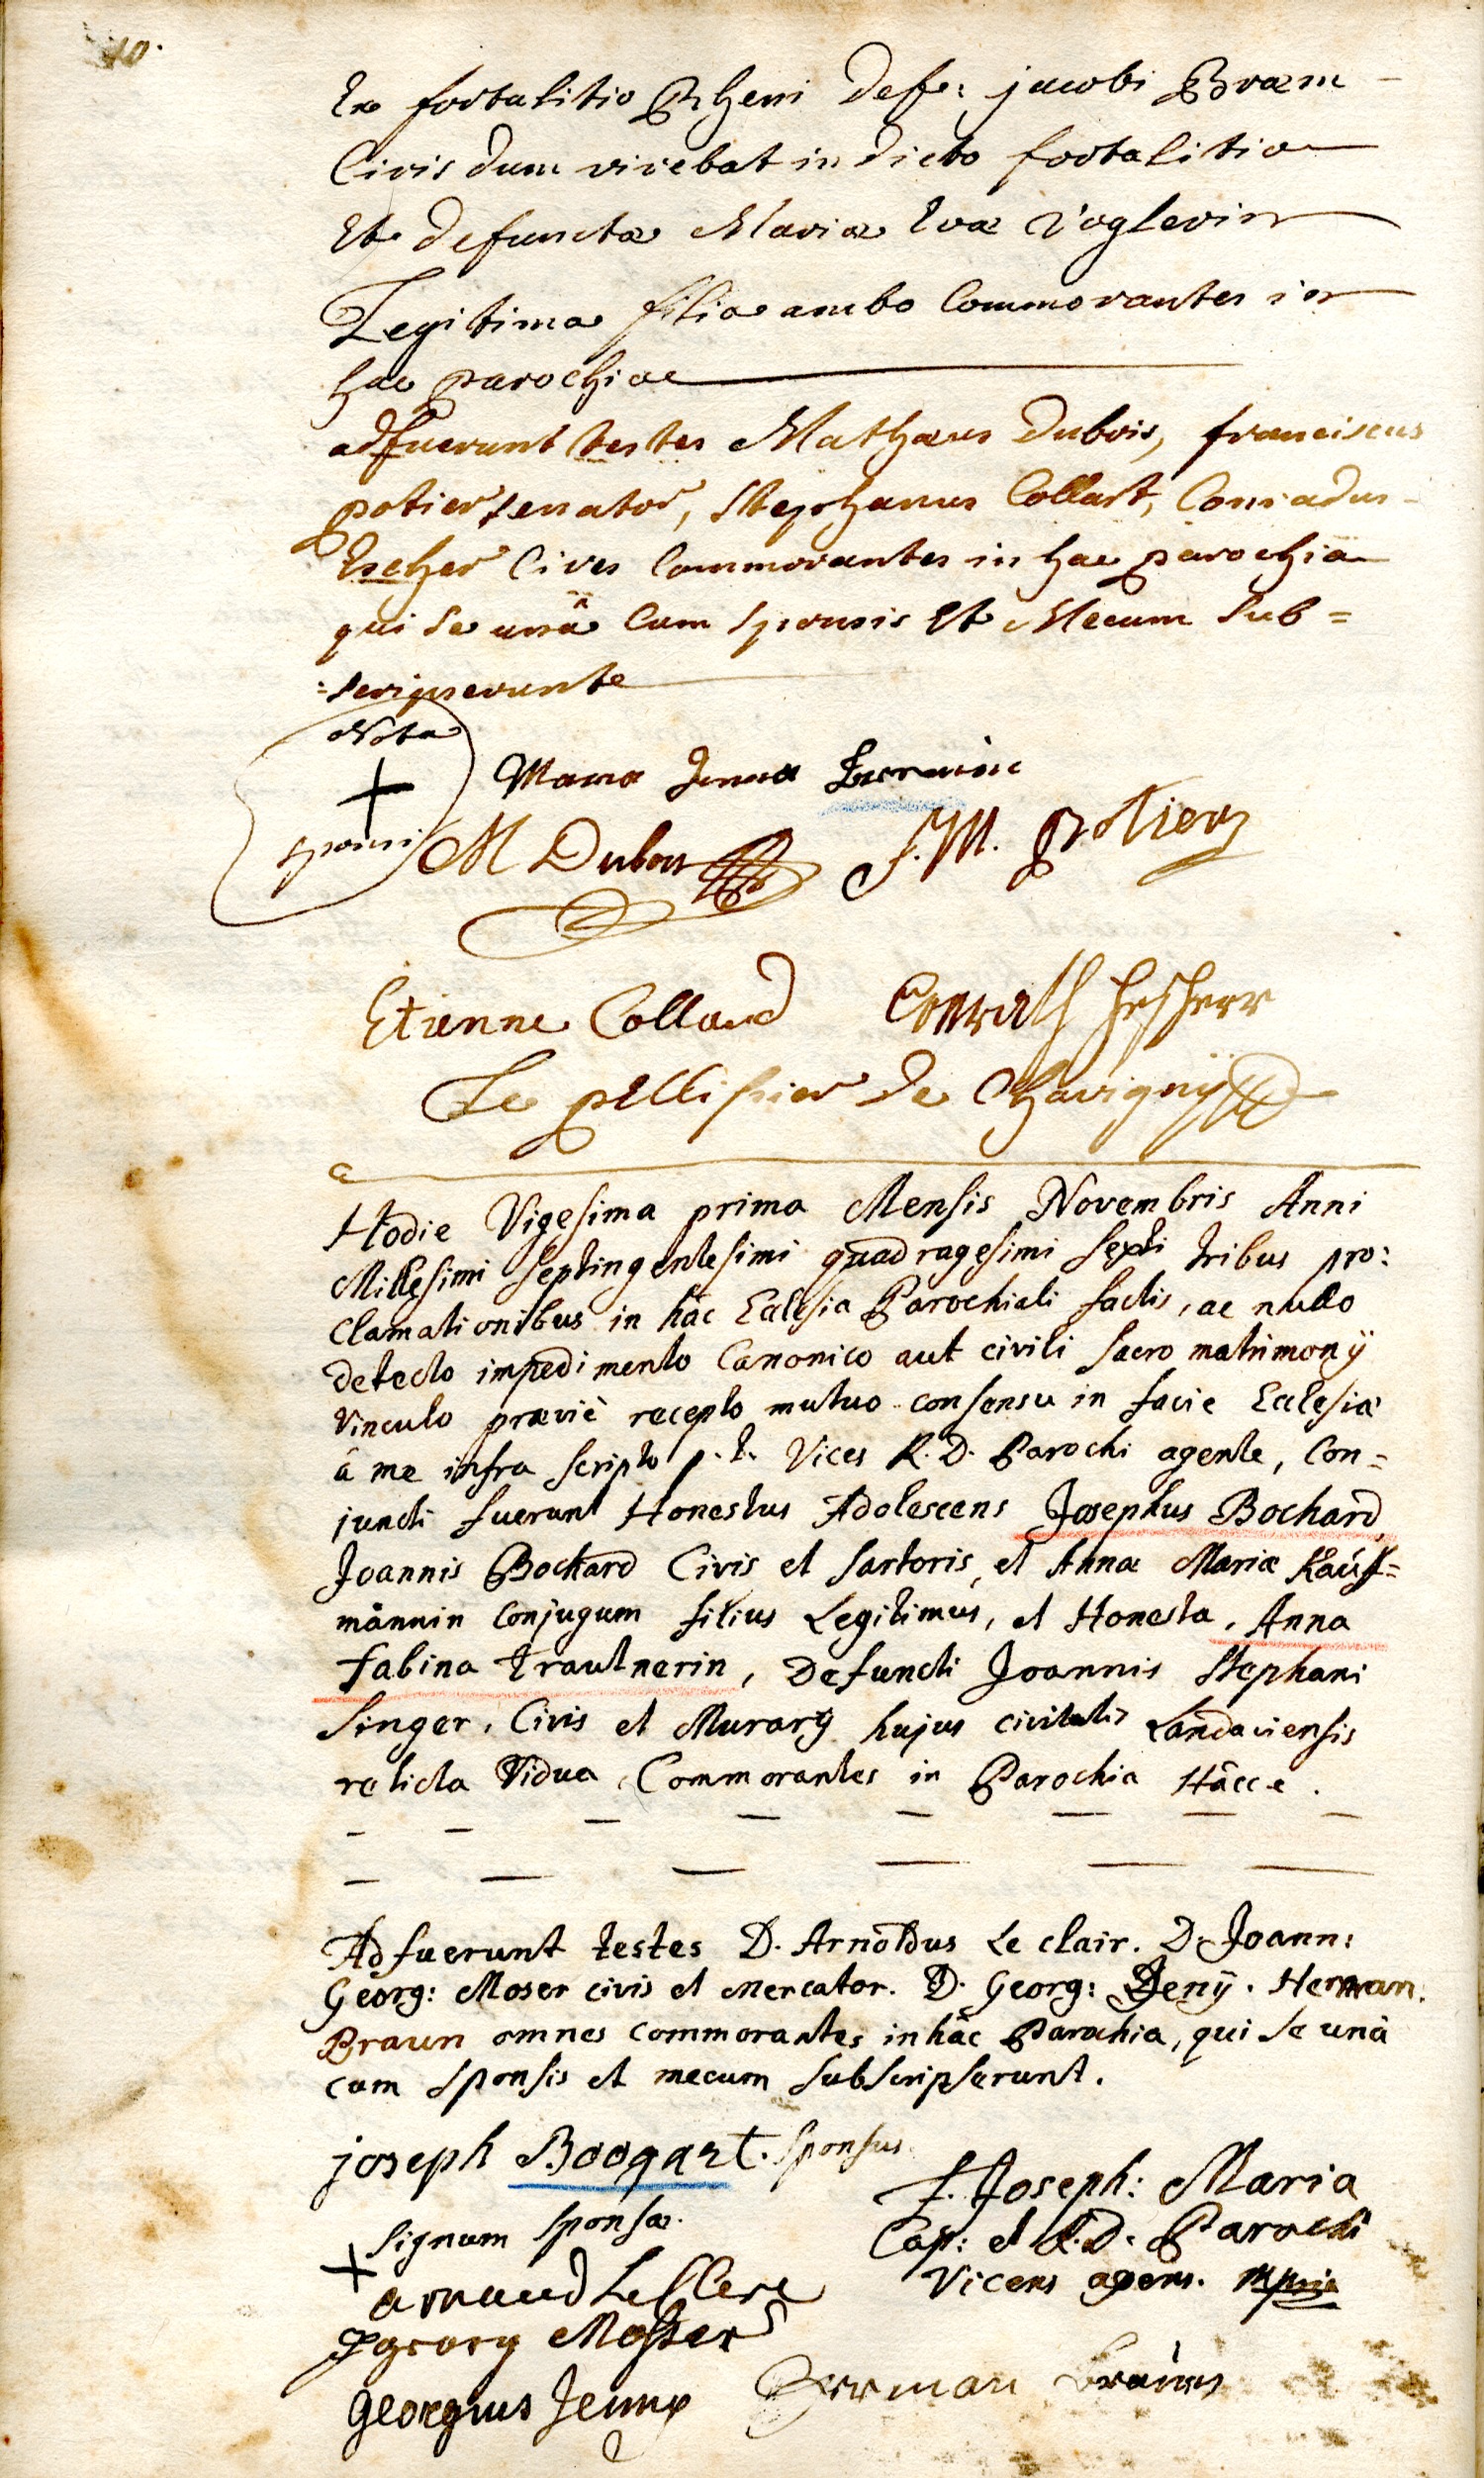 10.
Ex fortalitio Rheni Def: jacobi Braem
Civis dum vivebat in dicto fortalitio
Et defunctae Mariae Evae Voglerin
Legitima filia ambo Commorantes in
hac parochia
adfuerunt testes Mathaeus Dubois, franciscus
potier senator, Stephanus Collart, Conradus
Escher Cives Commorantes in hac parochia
qui se unâ Cum sponsis Et Mecum Sub=
=scripserunt
Nota
+
sponsi
Maria Anna
M Dubois
J. M. Potier
Etienne Colland
Conrath
Le pellissier de Chavigny
Hodie Vigesima prima Mensis Novembris Anni
Millesimi Septingentesimi quadragesimi Sexti tribus pro:
clamationibus in hâc Eclesia Parochiali factis, ac nullo
detecto impedimento Canonico aut civili Sacro matrimonÿ
Vinculo praeviè recepto mutuo consensu in facie Eclesiae
â me infra Scripto p. t. Vices R. D. Parochi agente, Con=
juncti fuerunt Honestus Adolescens Josephus Bochard,
Joannis Bochard Civis et Sartoris, et Annae Mariae Kauff=
männin Conjugum filius Legitimus, et Honesta, Anna
Sabina Trautnerin, Defuncti Joannis Stephani
Singer, Civis et Murarÿ hujus civitatis Landaviensis
relicta Vidua, Commorantes in Parochia Hâcce.
Adfuerunt testes D. Arnoldus Le clair. D. Joann:
Georg: Moser civis et Mercator. D. Georg: Jenÿ. Herman.
Braun omnes commorantes in hâc Parochia, qui se unâ
cum Sponsis et mecum Subscripserunt.
joseph Boogart. Sponsus
Signum Sponsae.
+
F. Joseph: Maria
Cap: et R. D. Parochi
Vicens agens. mpria
arnaud LeClere
georg Mosser
Georgius Jenny
Herman Brauns